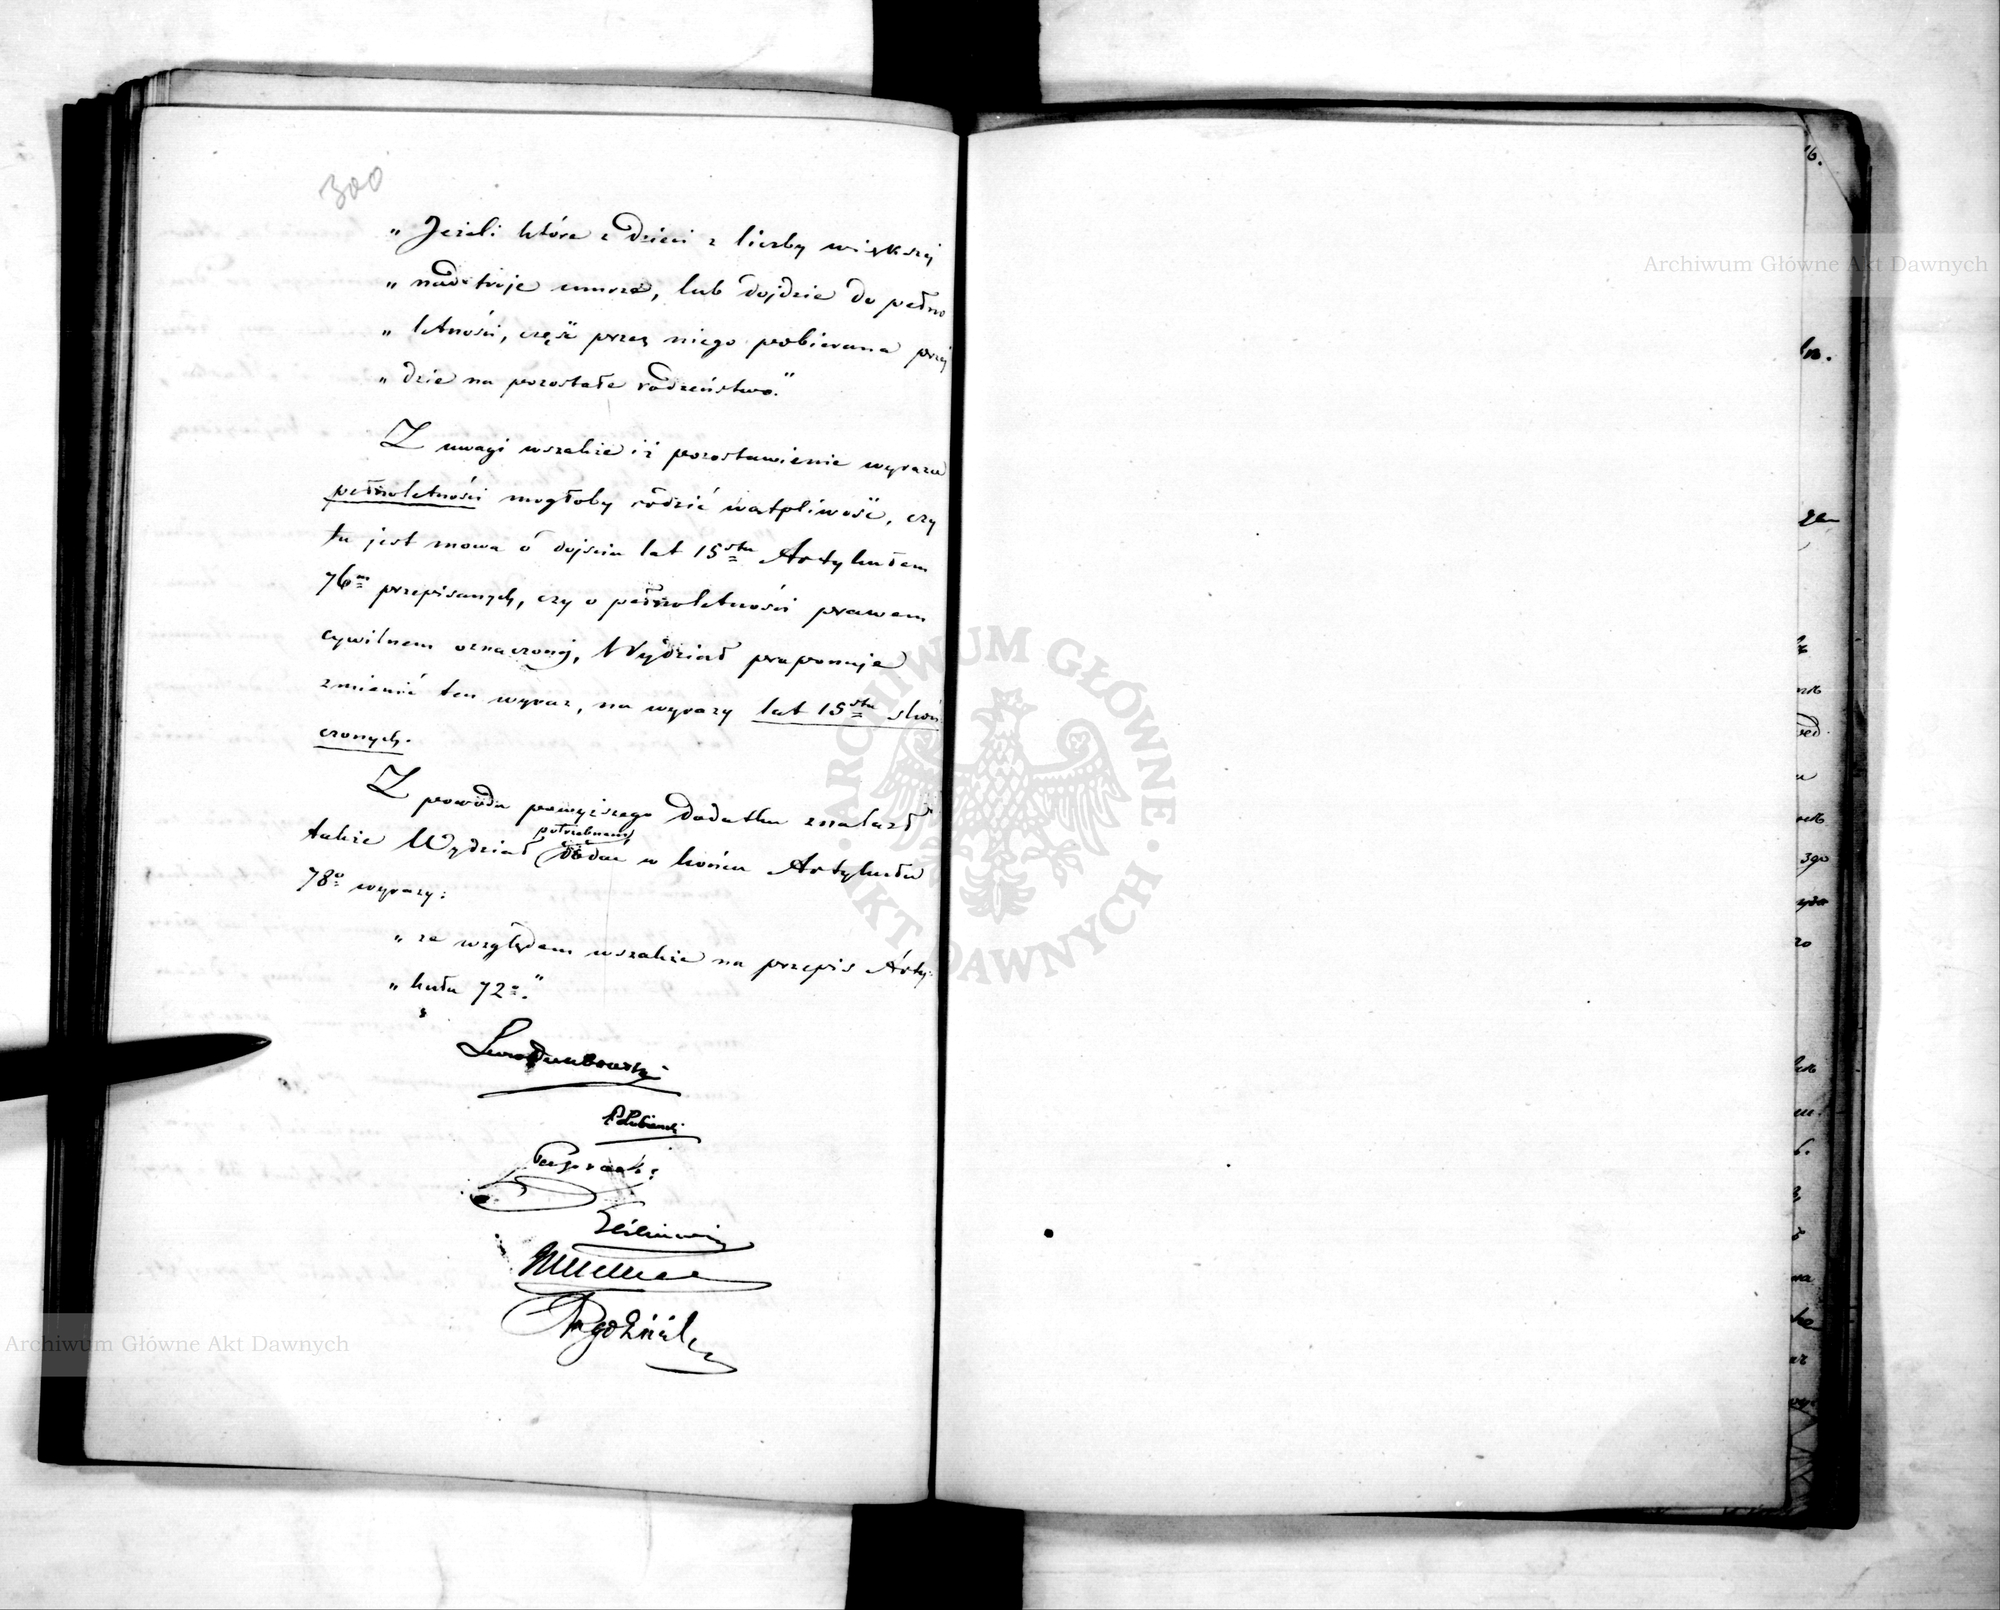 300
„ Jeżeli które z dzieci z liczby większej
„ nad troje umrze, lub dojdzie do pełno
„ letności, część przez niego pobierana przej
„ dzie na pozostałe rodzeństwo."
Z uwagi wszakże iż pozostawienie wyrazu
pełnoletności mogłoby rodzić wątpliwość, czy
tu jest mowa o dojściu lat 15stu Artykułem
76m przepisanych, czy o pełnoletności prawem
cywilnem oznaczonej, Wydział proponuje
zmienić ten wyraz, na wyrazy lat 15stu skoń
czonych.
Z powodu powyższego dodatku znalazł
także Wydział potrzebnem dodać w końcu Artykułu
78o wyrazy:
„ ze względem wszakże na przepis Arty-
„ kułu 72o."
Archiwum Główne Akt Dawnych
ARCHIWUM GŁÓWNE AKT DAWNYCH
Archiwum Główne Akt Dawnych